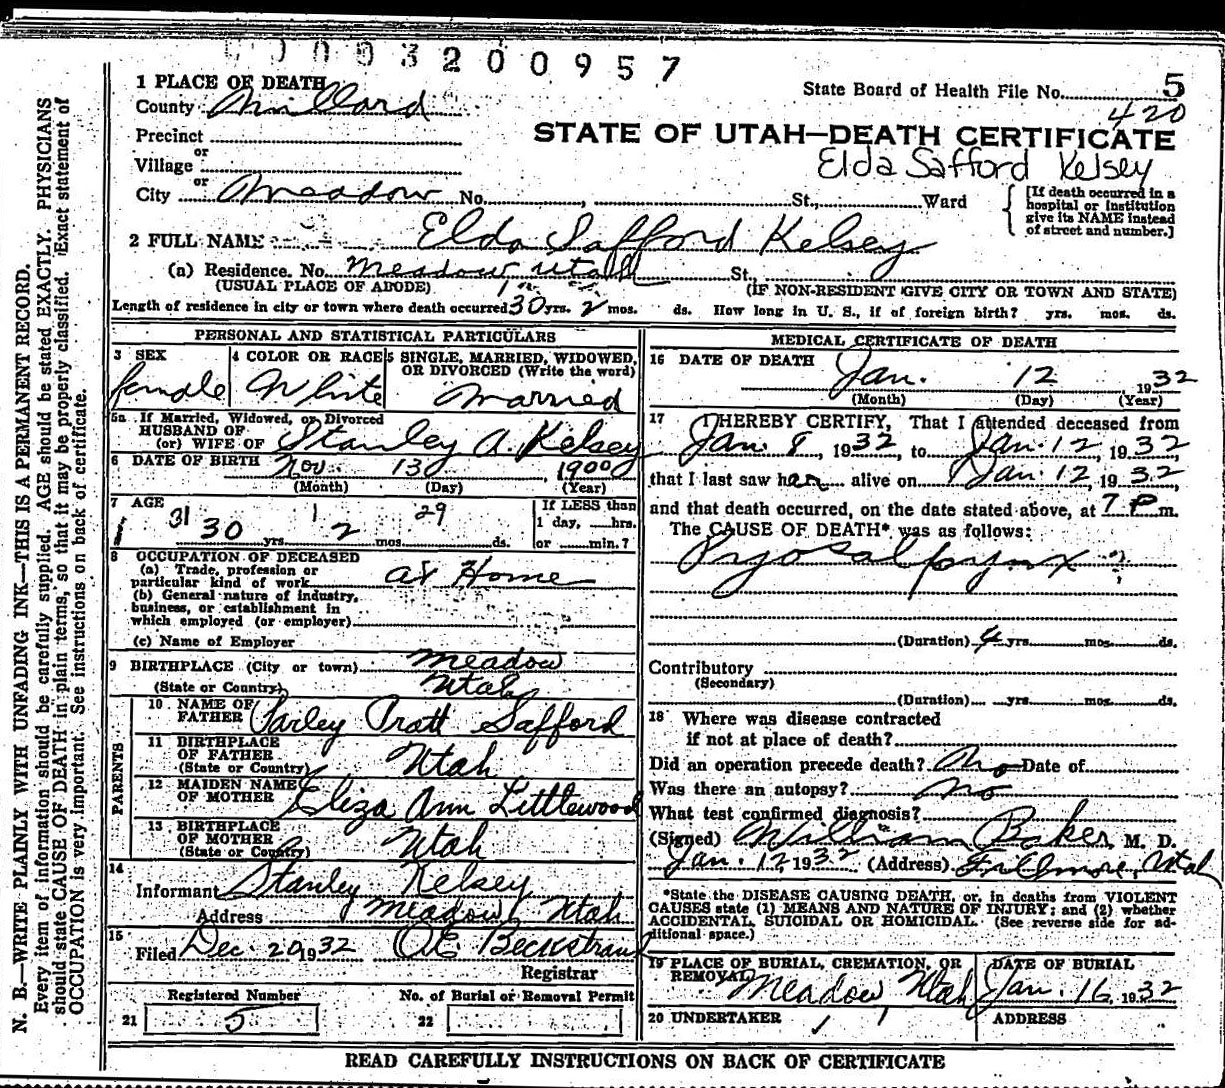 0003200957
1 PLACE OF DEATH
State Board of Health File No. 5
County Millard
420
Precinct
STATE OF UTAH—DEATH CERTIFICATE
or
Village
Elda Safford Kelsey
or
City Meadow No. , St., Ward
[If death occurred in a
hospital or institution
give its NAME instead
of street and number.]
2 FULL NAME Elda Safford Kelsey
(a) Residence. No. Meadow Utah St.
(USUAL PLACE OF ABODE) (IF NON-RESIDENT GIVE CITY OR TOWN AND STATE)
Length of residence in city or town where death occurred 30 yrs. 2 mos. ds. How long in U. S., if of foreign birth? yrs. mos. ds.
PERSONAL AND STATISTICAL PARTICULARS
3 SEX
female
4 COLOR OR RACE
White
5 SINGLE, MARRIED, WIDOWED,
OR DIVORCED (Write the word)
Married
5a If Married, Widowed, or Divorced
HUSBAND OF
(or) WIFE OF Stanley A. Kelsey
6 DATE OF BIRTH Nov. 13 1900
(Month) (Day) (Year)
7 AGE
31 1 29
30 yrs. 2 mos. ds.
If LESS than
1 day, hrs.
or min.?
8 OCCUPATION OF DECEASED
(a) Trade, profession or
particular kind of work At Home
(b) General nature of industry,
business, or establishment in
which employed (or employer)
(c) Name of Employer
9 BIRTHPLACE (City or town) Meadow
(State or Country) Utah
PARENTS
10 NAME OF
FATHER Parley Pratt Safford
11 BIRTHPLACE
OF FATHER
(State or Country) Utah
12 MAIDEN NAME
OF MOTHER Eliza Ann Littlewood
13 BIRTHPLACE
OF MOTHER
(State or Country) Utah
14
Informant Stanley Kelsey
Address Meadow Utah
15
Filed Dec. 20 1932 Beckstrand
Registrar
Registered Number
21 5
No. of Burial or Removal Permit
22
MEDICAL CERTIFICATE OF DEATH
16 DATE OF DEATH Jan. 12 1932
(Month) (Day) (Year)
17 I HEREBY CERTIFY, That I attended deceased from
Jan 8, 1932, to Jan. 12, 1932,
that I last saw her alive on Jan 12, 1932,
and that death occurred, on the date stated above, at 7 P m.
The CAUSE OF DEATH* was as follows:
Pyosalpynx ?
(Duration) 4 yrs. mos. ds.
Contributory
(Secondary)
(Duration) yrs. mos. ds.
18 Where was disease contracted
if not at place of death?
Did an operation precede death? No Date of
Was there an autopsy? No
What test confirmed diagnosis?
(Signed) William Baker, M. D.
Jan. 12, 1932 (Address) Fillmore, Utah
*State the DISEASE CAUSING DEATH, or, in deaths from VIOLENT
CAUSES state (1) MEANS AND NATURE OF INJURY; and (2) whether
ACCIDENTAL, SUICIDAL OR HOMICIDAL. (See reverse side for ad-
ditional space.)
19 PLACE OF BURIAL, CREMATION, OR
REMOVAL
Meadow Utah
DATE OF BURIAL
Jan. 16, 1932
20 UNDERTAKER
ADDRESS
READ CAREFULLY INSTRUCTIONS ON BACK OF CERTIFICATE
N. B.—WRITE PLAINLY WITH UNFADING INK—THIS IS A PERMANENT RECORD.
Every item of information should be carefully supplied. AGE should be stated EXACTLY. PHYSICIANS
should state CAUSE OF DEATH in plain terms, so that it may be properly classified. Exact statement of
OCCUPATION is very important. See instructions on back of certificate.